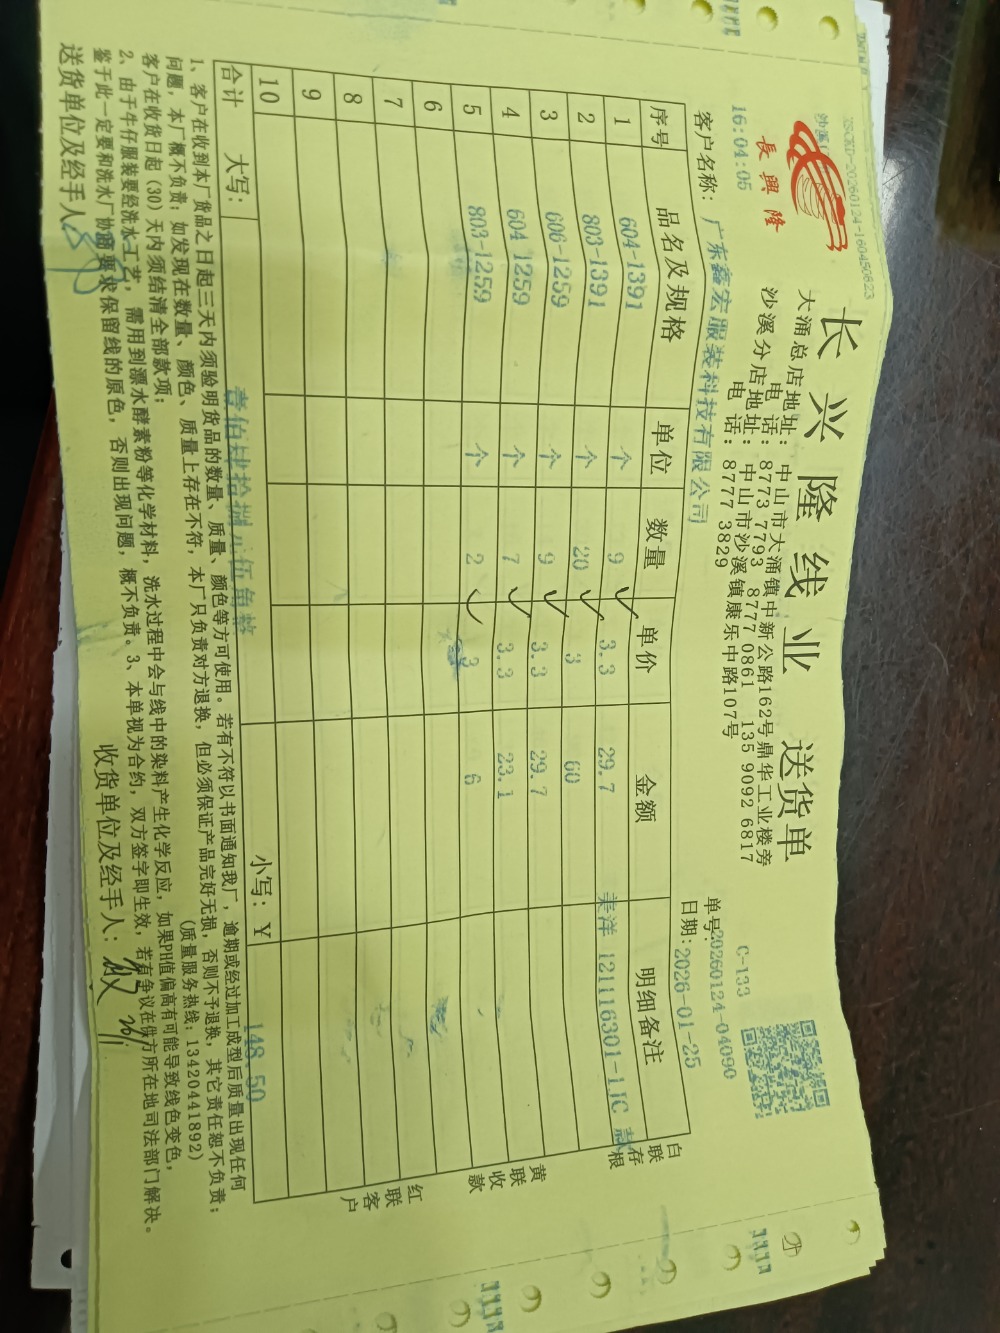 XSCKD-20260124-160450823
16:04:05
長興隆
长兴隆线业 送货单
大涌总店地址：中山市大涌镇中新公路162号鼎华工业楼旁
电 话：8773 7793 8777 0861 135 9092 6817
沙溪分店地址：中山市沙溪镇康乐中路107号
电 话：8777 3829
C-133
单号：20260124-04090
日期：2026-01-25
客户名称：广东鑫宏服装科技有限公司
序号 品名及规格 单位 数量 单价 金额 明细备注
1 604-1391 个 9 3.3 29.7 美洋 121116301-1JC
2 803-1391 个 20 3 60
3 606-1259 个 9 3.3 29.7
4 604 1259 个 7 3.3 23.1
5 803-1259 个 2 3 6
6
7
8
9
10
合计 大写：壹佰肆拾捌元伍角整 小写：¥ 148.50
白联存根
黄联收款
红联客户
1、客户在收到本厂货品之日起三天内须验明货品的数量、质量、颜色等方可使用。若有不符以书面通知我厂，逾期或经过加工成型后质量出现任何
问题，本厂概不负责；如发现在数量、颜色、质量上存在不符，本厂只负责对方退换，但必须保证产品完好无损，否则不予退换，其它责任恕不负责；
客户在收货日起（30）天内须结清全部款项； （质量服务热线：13420441892）
2、由于牛仔服装要经洗水工艺，需用到漂水酵素粉等化学材料，洗水过程中会与线中的染料产生化学反应，如果PH值偏高有可能导致线色变色，
鉴于此一定要和洗水厂协商要求保留线的原色，否则出现问题，概不负责。3、本单视为合约，双方签字即生效，若有争议在供方所在地司法部门解决。
送货单位及经手人： 收货单位及经手人：